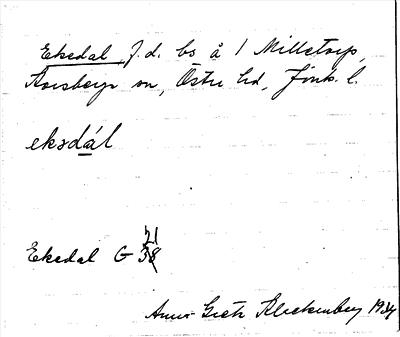 Eksdal f.d. bs å 1 Milletorp,
Korsberga sn, Östra hd, Jönk. l.
eksdál
Eksdal G 38 21
Anna Greta Kleckenberg 1934